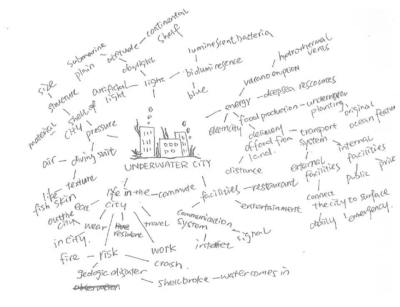 continental
shelf
submarine
plain
altitude
daylight
luminescent bacteria
bioluminesence
blue
light
artificial
light
size
structure
material
shell of
city
pressure
air
diving suit
texture
like
fish skin
hydrothermal
vents
varano eruption
energy
deepsea rescources
electricity
food production
underwater
planting
delivery
of food from
land
distance
transport
system
original
ocean feature
internal
facilities
external
facilities
public
connect
the city to surface
emergency
UNDERWATER CITY
life in the
city
commute
facilities
restaurant
entertainment
communication
system
signal
travel
eat
out the
city
in city
wear
resident
work
fire
risk
crash
geologic disaster
shell broke
water comes in